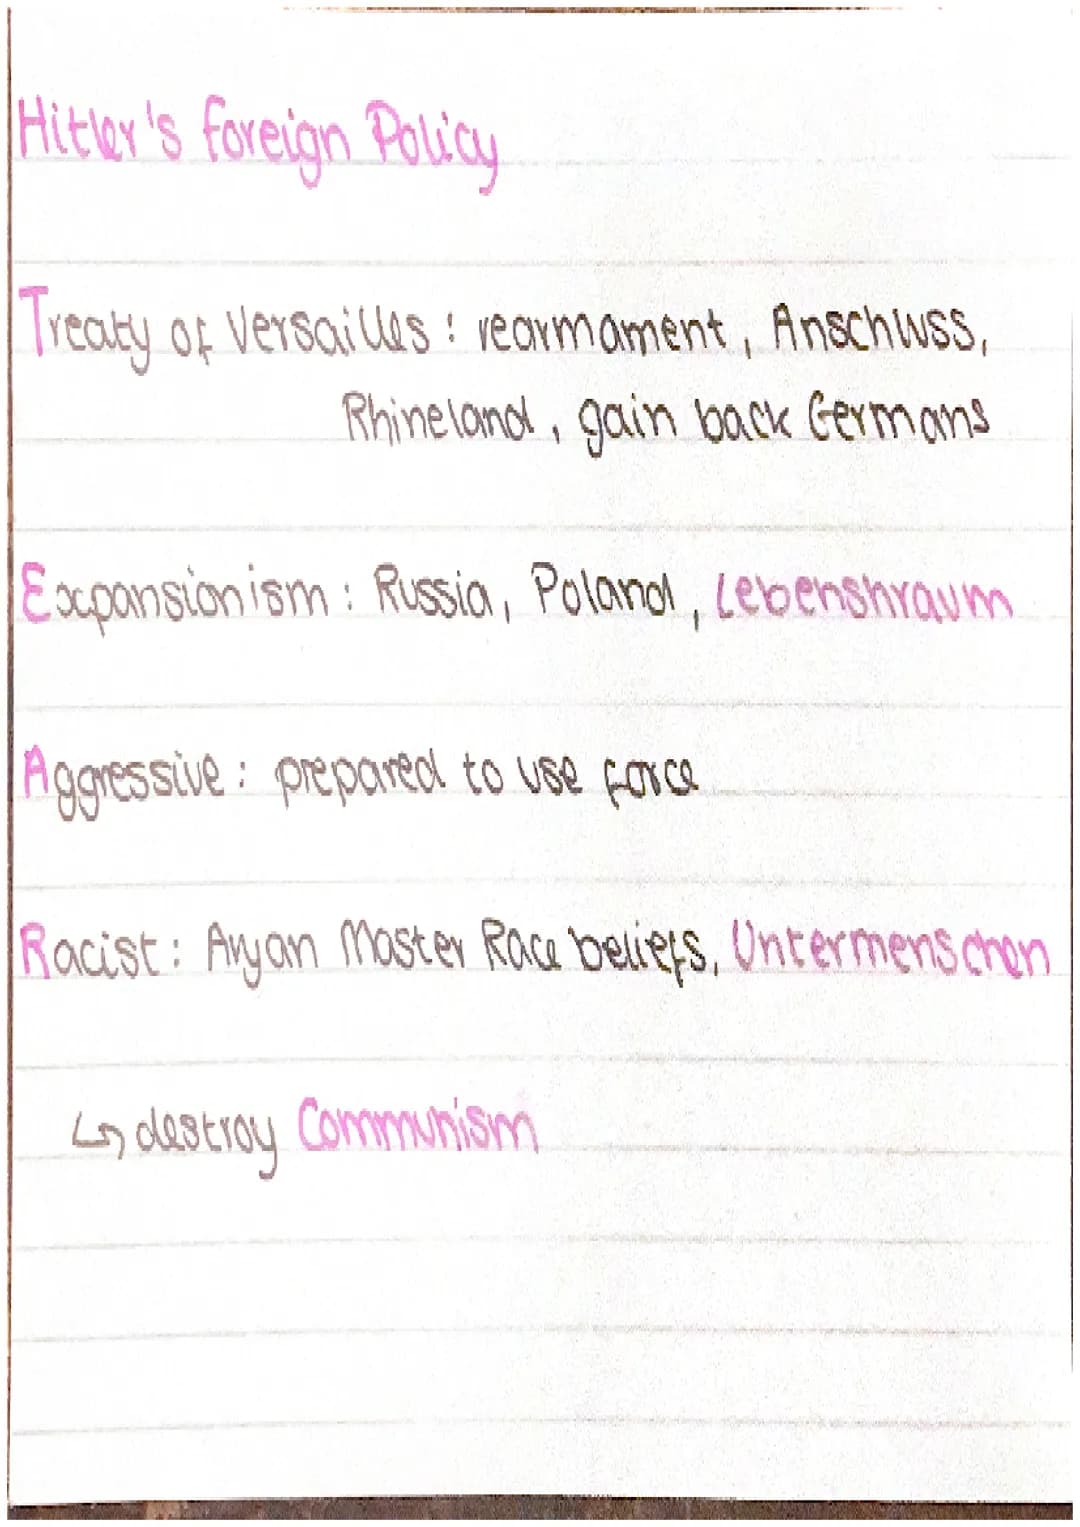 Hitler's foreign Policy
Treaty of Versailles : rearmament, Anschluss,
Rhineland, gain back Germans
Expansionism : Russia, Poland, Lebenshraum
Aggressive : prepared to use force
Racist : Aryan Master Race beliefs, Untermenschen
↳ destroy Communism